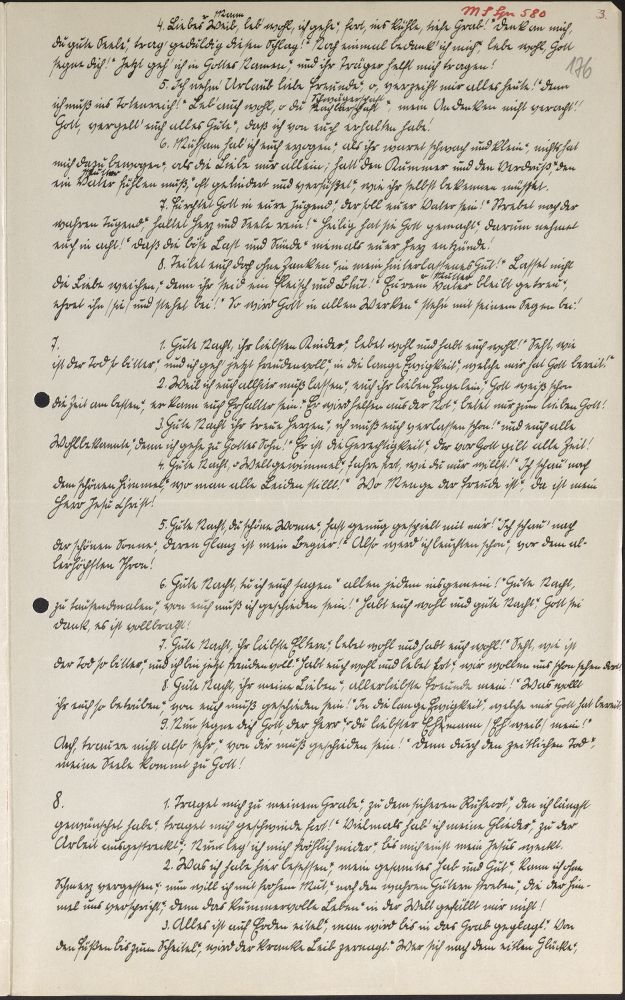 Mann MS Spr 580 3.
4. Liebes Weib, leb wohl, ich gehe, fort, ins kühle, tiefe Grab! Denk an mich,
du gute Seele, trag geduldig diesen Schlag! Noch einmal bedank ich mich, lebe wohl, Gott
segne dich! Jetzt geh ich in Gottes Namen, und ihr Träger helft mich tragen!
176
5. Ich nehm Urlaub liebe Freunde, o, verzeiht mir alles heute! Denn
ich muß ins Totenreich! Leb auch wohl, o du Nachbarschaft, mein Andenken nicht veracht!
Schwägerschaft
Gott, vergelt euch alles Gute, daß ich von euch erhalten habe!
6. Mühsam hab ich euch erzogen, als ihr waret schwach und klein, nichts hat
mich dazu bewogen, als die Liebe nur allein; hatt den Kummer und den Verdruß, den
Mutter
ein Vater fühlen muß, oft gelindert und versüßet, wie ihr selbst bekennen müsstet.
7. Fürchtet Gott in eurer Jugend, der soll euer Vater sein! Strebet nach der
wahren Tugend, haltet Herz und Seele rein! Heilig hat sie Gott gemacht, darum nehmet
euch in acht! Daß die böse Lust und Sünde niemals euer Herz entzünde!
8. Teilet euch doch ohne Zanken in mein hinterlassenes Gut! Lasset nicht
Mutter
die Liebe weichen, denn ihr seid ein Fleisch und Blut! Eurem Vater bleibt getreu,
ehret ihn (sie) und stehet bei! So wird Gott in allen Werken stehn mit seinem Segen bei!
7.
1. Gute Nacht, ihr liebsten Kinder, lebet wohl und habt euch wohl! Seht, wie
ist der Tod so bitter, und ich geh jetzt freudenvoll, in die lange Ewigkeit, welche mir hat Gott bereit!
2. Weil ich euch allhier muß lassen, euch ihr lieben Engelein, Gott weiß schon
die Zeit am besten, er kann euch Erhalter sein! Er wird helfen aus der Not, betet nur zum lieben Gott!
3. Gute Nacht ihr treue Herzen, ich muß euch verlassen schon! und euch alle
Wohlbekannte, denn ich gehe zu Gottes Sohn! Er ist die Gerechtigkeit, der vor Gott gilt alle Zeit!
4. Gute Nacht, o Weltgewimmel, fahre fort, wie du nur willst! Ich schau nach
dem schönen Himmel, wo man alle Leiden stillt! Wo Menge der Freude ist, da ist mein
Herr Jesu Christ!
5. Gute Nacht, du schöne Wonne, hast genug gespielt mit mir! Ich schau' nach
der schönen Sonne, deren Glanz ist mein Begier! Also werd ich leuchten schön, vor dem al-
lerhöchsten Thron!
6. Gute Nacht, tu ich euch sagen allen jedem insgemein! Gute Nacht,
zu tausendmalen, von euch muß ich geschieden sein! Habt euch wohl und gute Nacht, Gott sei
Dank, es ist vollbracht!
7. Gute Nacht, ihr liebste Eltern, lebet wohl und habt euch wohl! Seht, wie ist
der Tod so bitter, und ich bin jetzt freudenvoll! Habt euch wohl und lebet fort, wir wollen uns schon sehen dort
8. Gute Nacht, ihr meine Lieben, allerliebste Freunde mein! Was wollt
ihr euch so betrüben, von euch muß geschieden sein! In die lange Ewigkeit, welche mir Gott hat bereit
9. Nun segne dich Gott der Herr, du liebster Ehemann (Eheweib) mein!
Ach, traure nicht also sehr, von dir muß geschieden sein! Denn durch den zeitlichen Tod,
meine Seele kommt zu Gott!
8.
1. Traget mich zu meinem Grabe, zu dem sicheren Ruheort, den ich längst
gewünschet habe, traget mich geschwinde fort! Vielmals hab' ich meine Glieder, zu der
Arbeit ausgestreckt, Nun leg' ich mich fröhlich nieder, bis mich einst mein Jesus weckt.
2. Was ich habe hier besessen, mein gesamtes Hab und Gut, kann ich ohne
Schmerz vergessen, nun will ich mit frohem Mut, nach den wahren Gütern streben, die der Him-
mel uns verspricht, denn das kummervolle Leben in der Welt gefällt mir nicht!
3. Alles ist auf Erden eitel, man wird bis in das Grab geplagt. Von
den Füßen bis zum Scheitel, wird der kranke Leib zernagt. Wer sich nach dem eitlen Glücke,